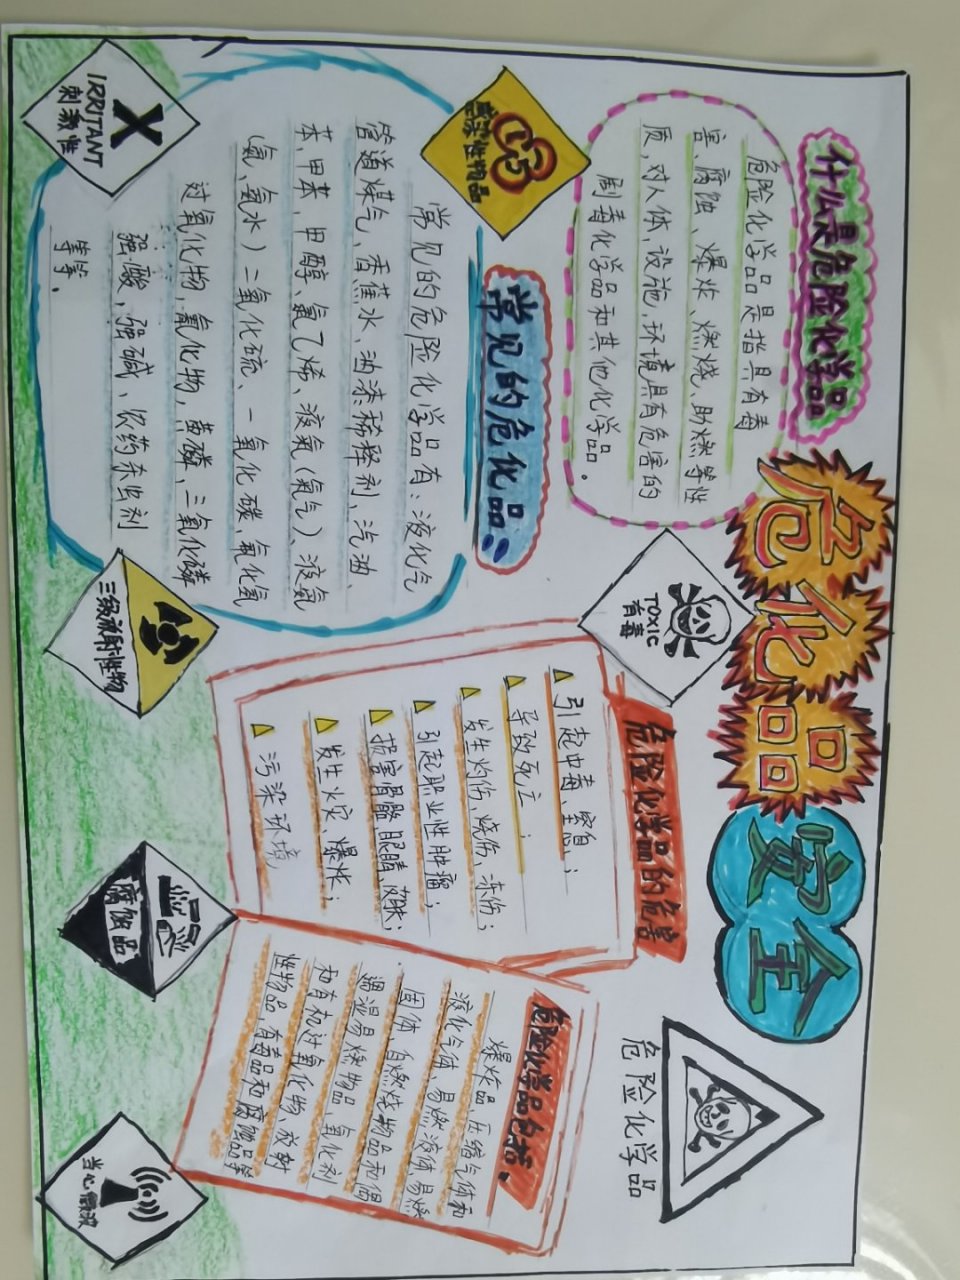 危化品
安全
什么是危险化学品
危险化学品是指具有毒
害、腐蚀、爆炸、燃烧、助燃等性
质,对人体、设施、环境具有危害的
剧毒化学品和其他化学品。
感染性物品
常见的危化品:
常见的危险化学品有:液化气
管道煤气,香蕉水,油漆稀释剂,汽油、
苯,甲苯,甲醇、氯乙烯、液氯(氯气)、液氨
(氨、氨水)二氧化硫、一氧化碳,氟化氢
过氧化物,氰化物,黄磷,三氯化磷
强酸,强碱、农药杀虫剂
等等。
IRRITANT
刺激性
TOXIC
有毒
三级放射性物
危险化学品的危害
引起中毒、窒息;
导致死亡;
发生灼伤,烧伤,冻伤;
引起职业性肿瘤;
损害骨骼、眼睛、皮肤;
发生火灾、爆炸;
污染环境,
危险化学品包括:
爆炸品、压缩气体和
液化气体、易燃液体、易燃
固体、自燃烧物品和偶
遇湿易燃物品、氧化剂
和有机过氧化物,放射
性物品,有毒品和腐蚀品等
危险化学品
腐蚀品
当心微波